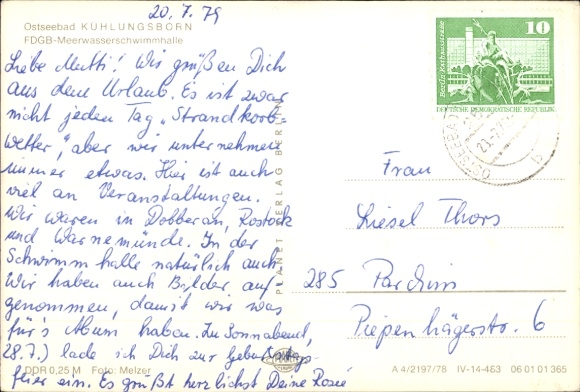 20.7.79
Ostseebad KÜHLUNGSBORN
FDGB-Meerwasserschwimmhalle
Liebe Mutti! Wir grüßen Dich
aus dem Urlaub. Es ist zwar
nicht jeden Tag „Strandkorb-
wetter", aber wir unternehmen
immer etwas. Hier ist auch
viel an Veranstaltungen.
Wir waren in Dobberan, Rostock
und Warnemünde. In der
Schwimmhalle natürlich auch.
Wir haben auch Bilder auf-
genommen, damit wir was
für's Album haben. Zu Sonnabend,
28.7.) lade ich Dich zur Geburtstags-
feier ein. Es grüßt herzlichst Deine
DDR 0,25 M Foto: Melzer
PLANET-VERLAG BERLIN
10
Berlin, Rathausstraße
DEUTSCHE DEMOKRATISCHE REPUBLIK
Frau
Liesel Thors
285 Parchim
Piepenhägerstr. 6
A 4/2197/78 IV-14-463 06 01 01 365